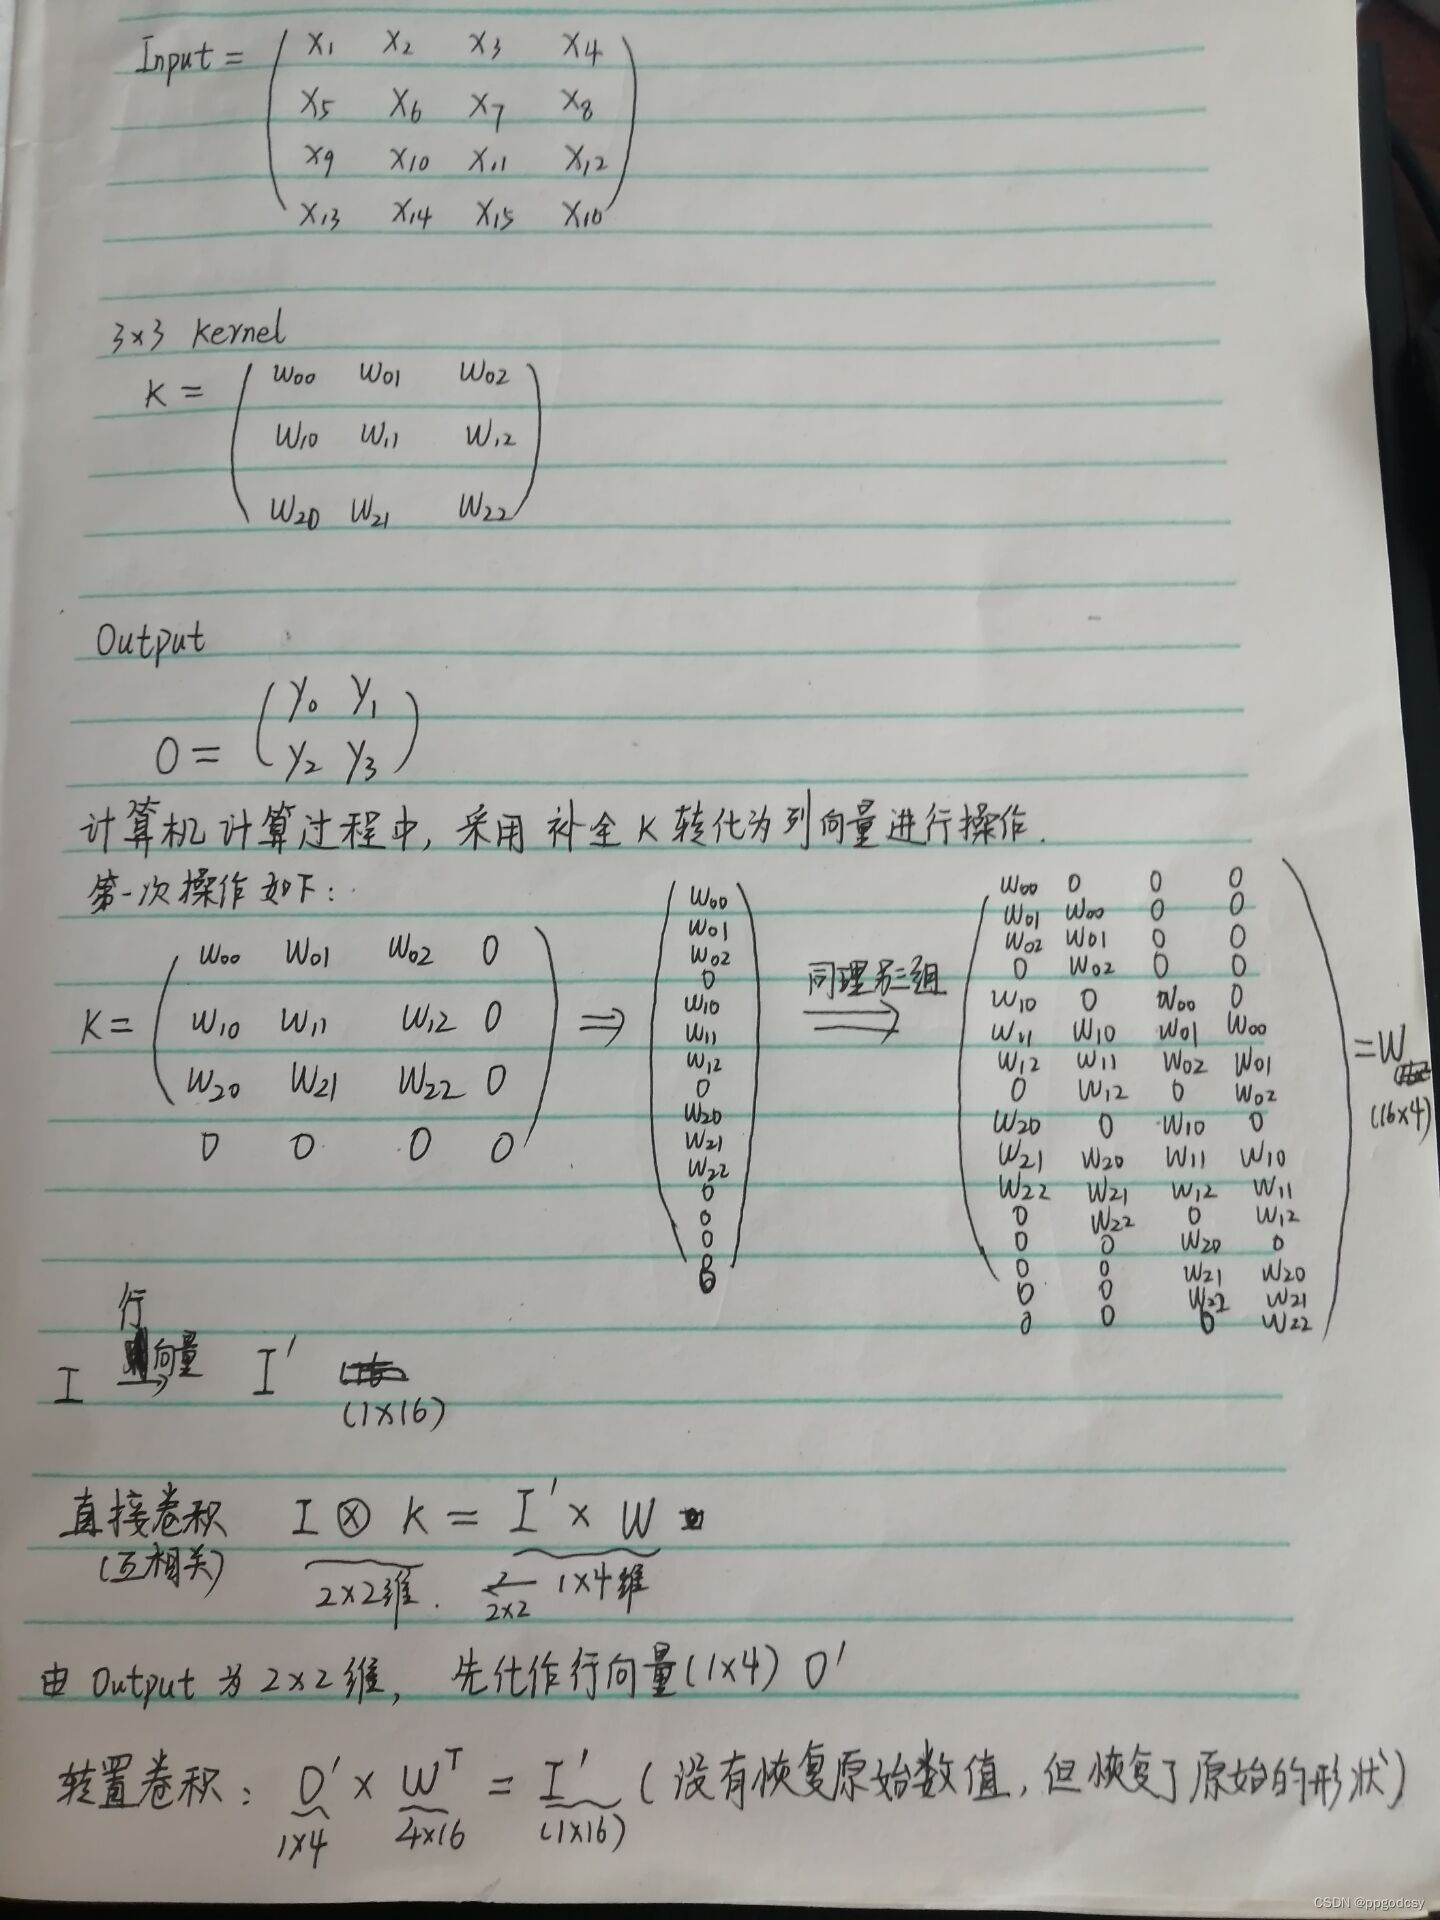 Input = ( x1 x2 x3 x4
x5 x6 x7 x8
x9 x10 x11 x12
x13 x14 x15 x16 )
3×3 Kernel
K = ( w00 w01 w02
w10 w11 w12
w20 w21 w22 )
Output
O = ( y0 y1
y2 y3 )
计算机计算过程中, 采用 补全 K 转化为列向量进行操作.
第一次操作如下:
K = ( w00 w01 w02 0
w10 w11 w12 0
w20 w21 w22 0
0 0 0 0 )
⇒
( w00
w01
w02
0
w10
w11
w12
0
w20
w21
w22
0
0
0
0
0 )
同理另三组
⇒
( w00 0 0 0
w01 w00 0 0
w02 w01 0 0
0 w02 0 0
w10 0 w00 0
w11 w10 w01 w00
w12 w11 w02 w01
0 w12 0 w02
w20 0 w10 0
w21 w20 w11 w10
w22 w21 w12 w11
0 w22 0 w12
0 0 w20 0
0 0 w21 w20
0 0 w22 w21
0 0 0 w22 )
= W
(16×4)
行
向量
I → I'
(1×16)
直接卷积 I ⊗ K = I' × W
(互相关) 2×2维. ← 1×4维
2×2
由 Output 为 2×2 维, 先化作行向量(1×4) O'
转置卷积: O' × W^T = I' (没有恢复原始数值, 但恢复了原始的形状)
1×4 4×16 (1×16)
CSDN @ppgodcsy